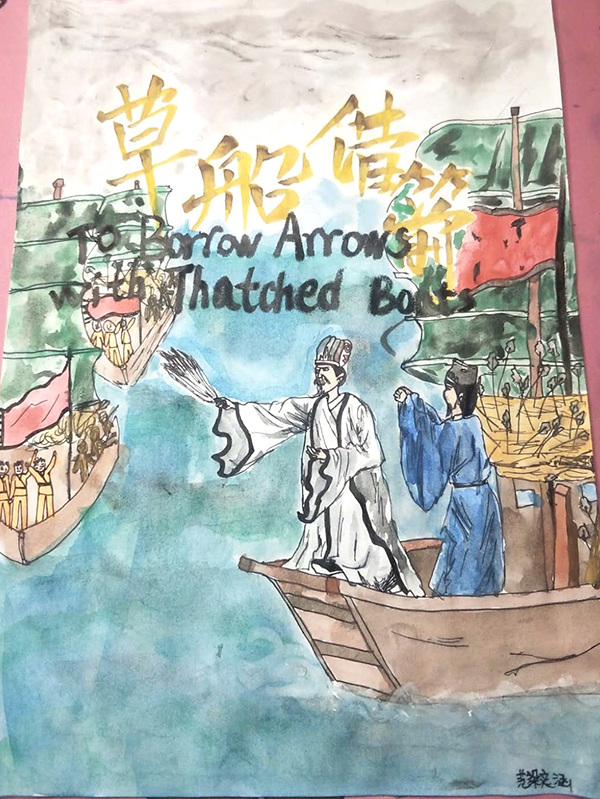 草船借箭
To Borrow Arrows
with Thatched Boats